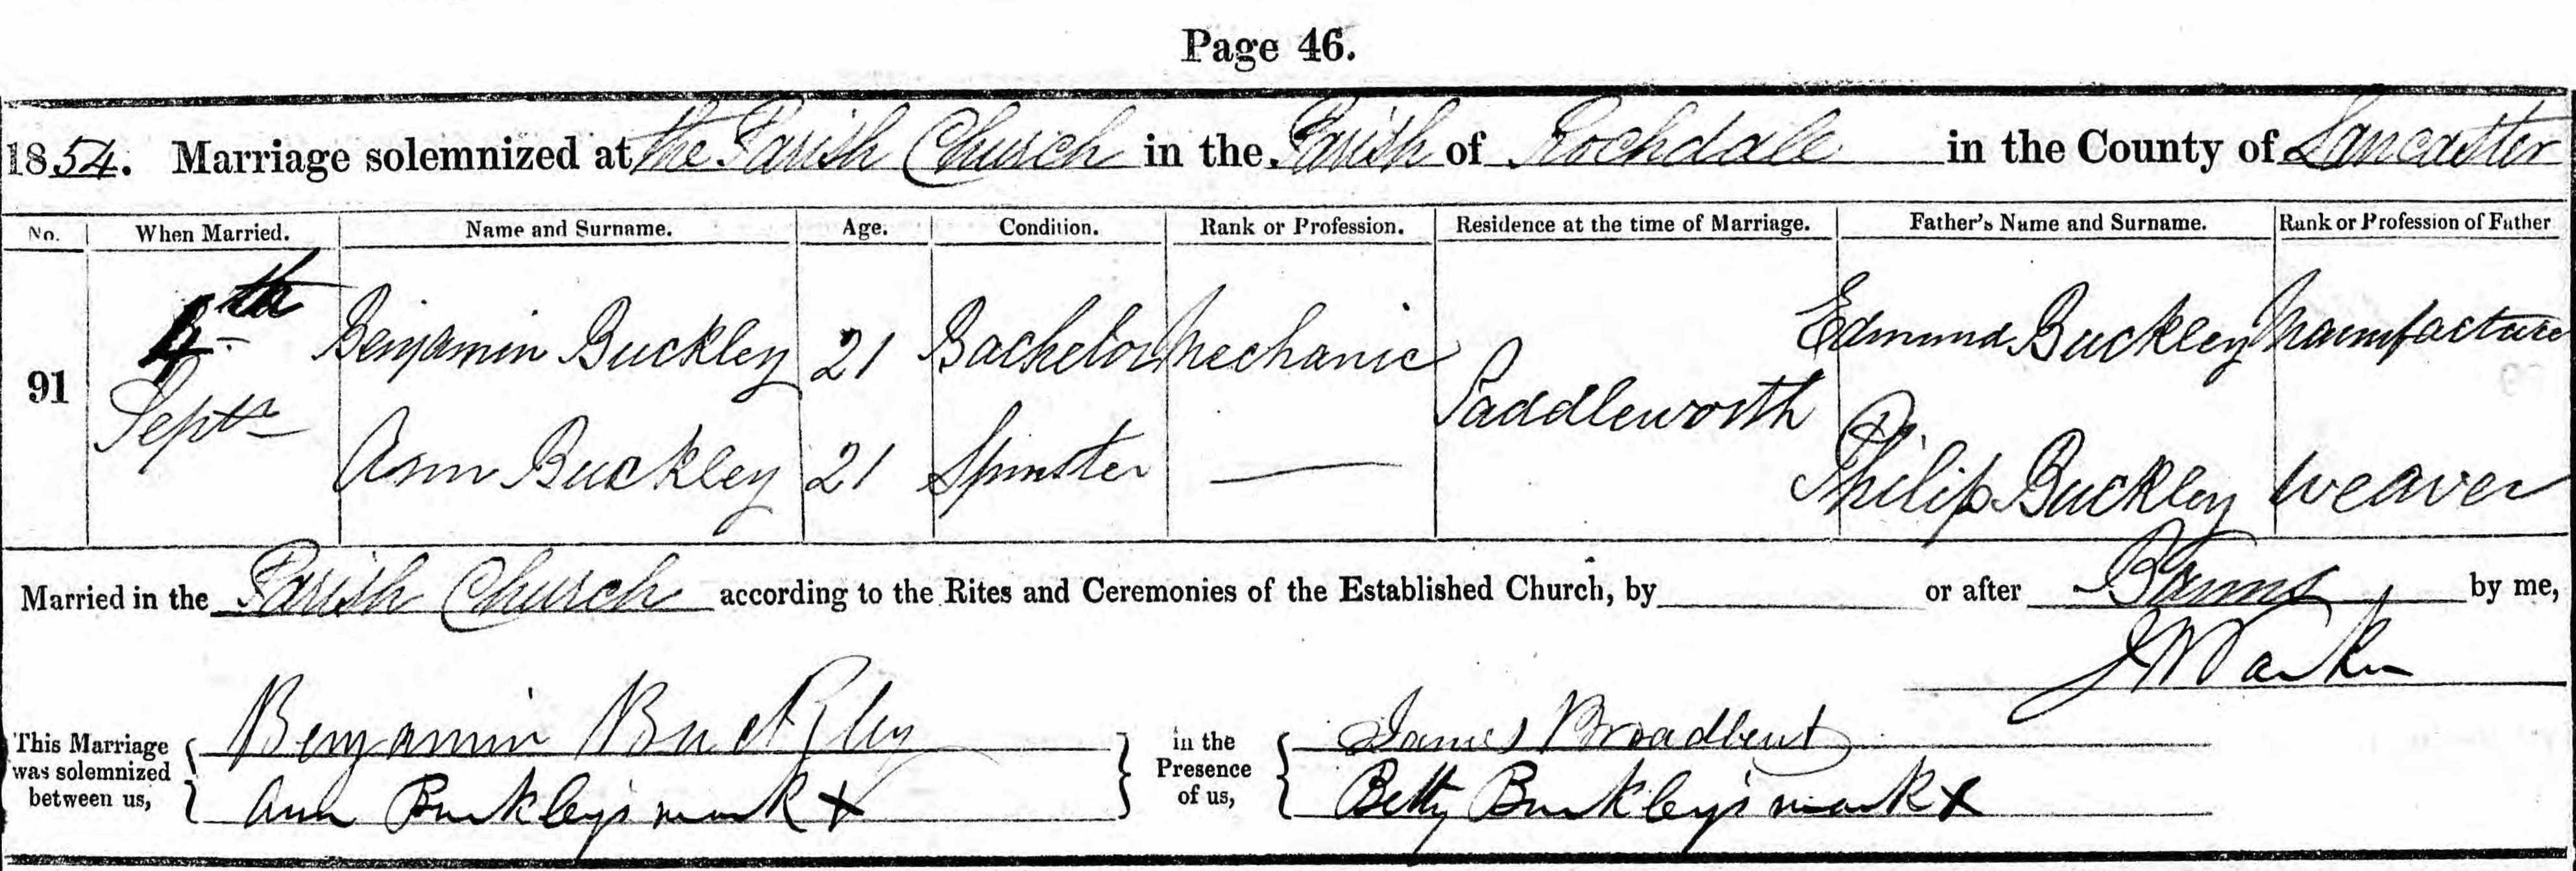 Page 46.
1854. Marriage solemnized at the Parish Church in the Parish of Rochdale in the County of Lancaster
No. When Married. Name and Surname. Age. Condition. Rank or Profession. Residence at the time of Marriage. Father's Name and Surname. Rank or Profession of Father
91 4th Septr Benjamin Buckley 21 Bachelor Mechanic Saddleworth Edmund Buckley Manufacturer
Ann Buckley 21 Spinster — Philip Buckley Weaver
Married in the Parish Church according to the Rites and Ceremonies of the Established Church, by or after Banns by me,
J W Parker
This Marriage was solemnized between us, { Benjamin Buckley } in the Presence of us, { James Broadbent
Ann Buckley's mark X Betty Buckley's mark X